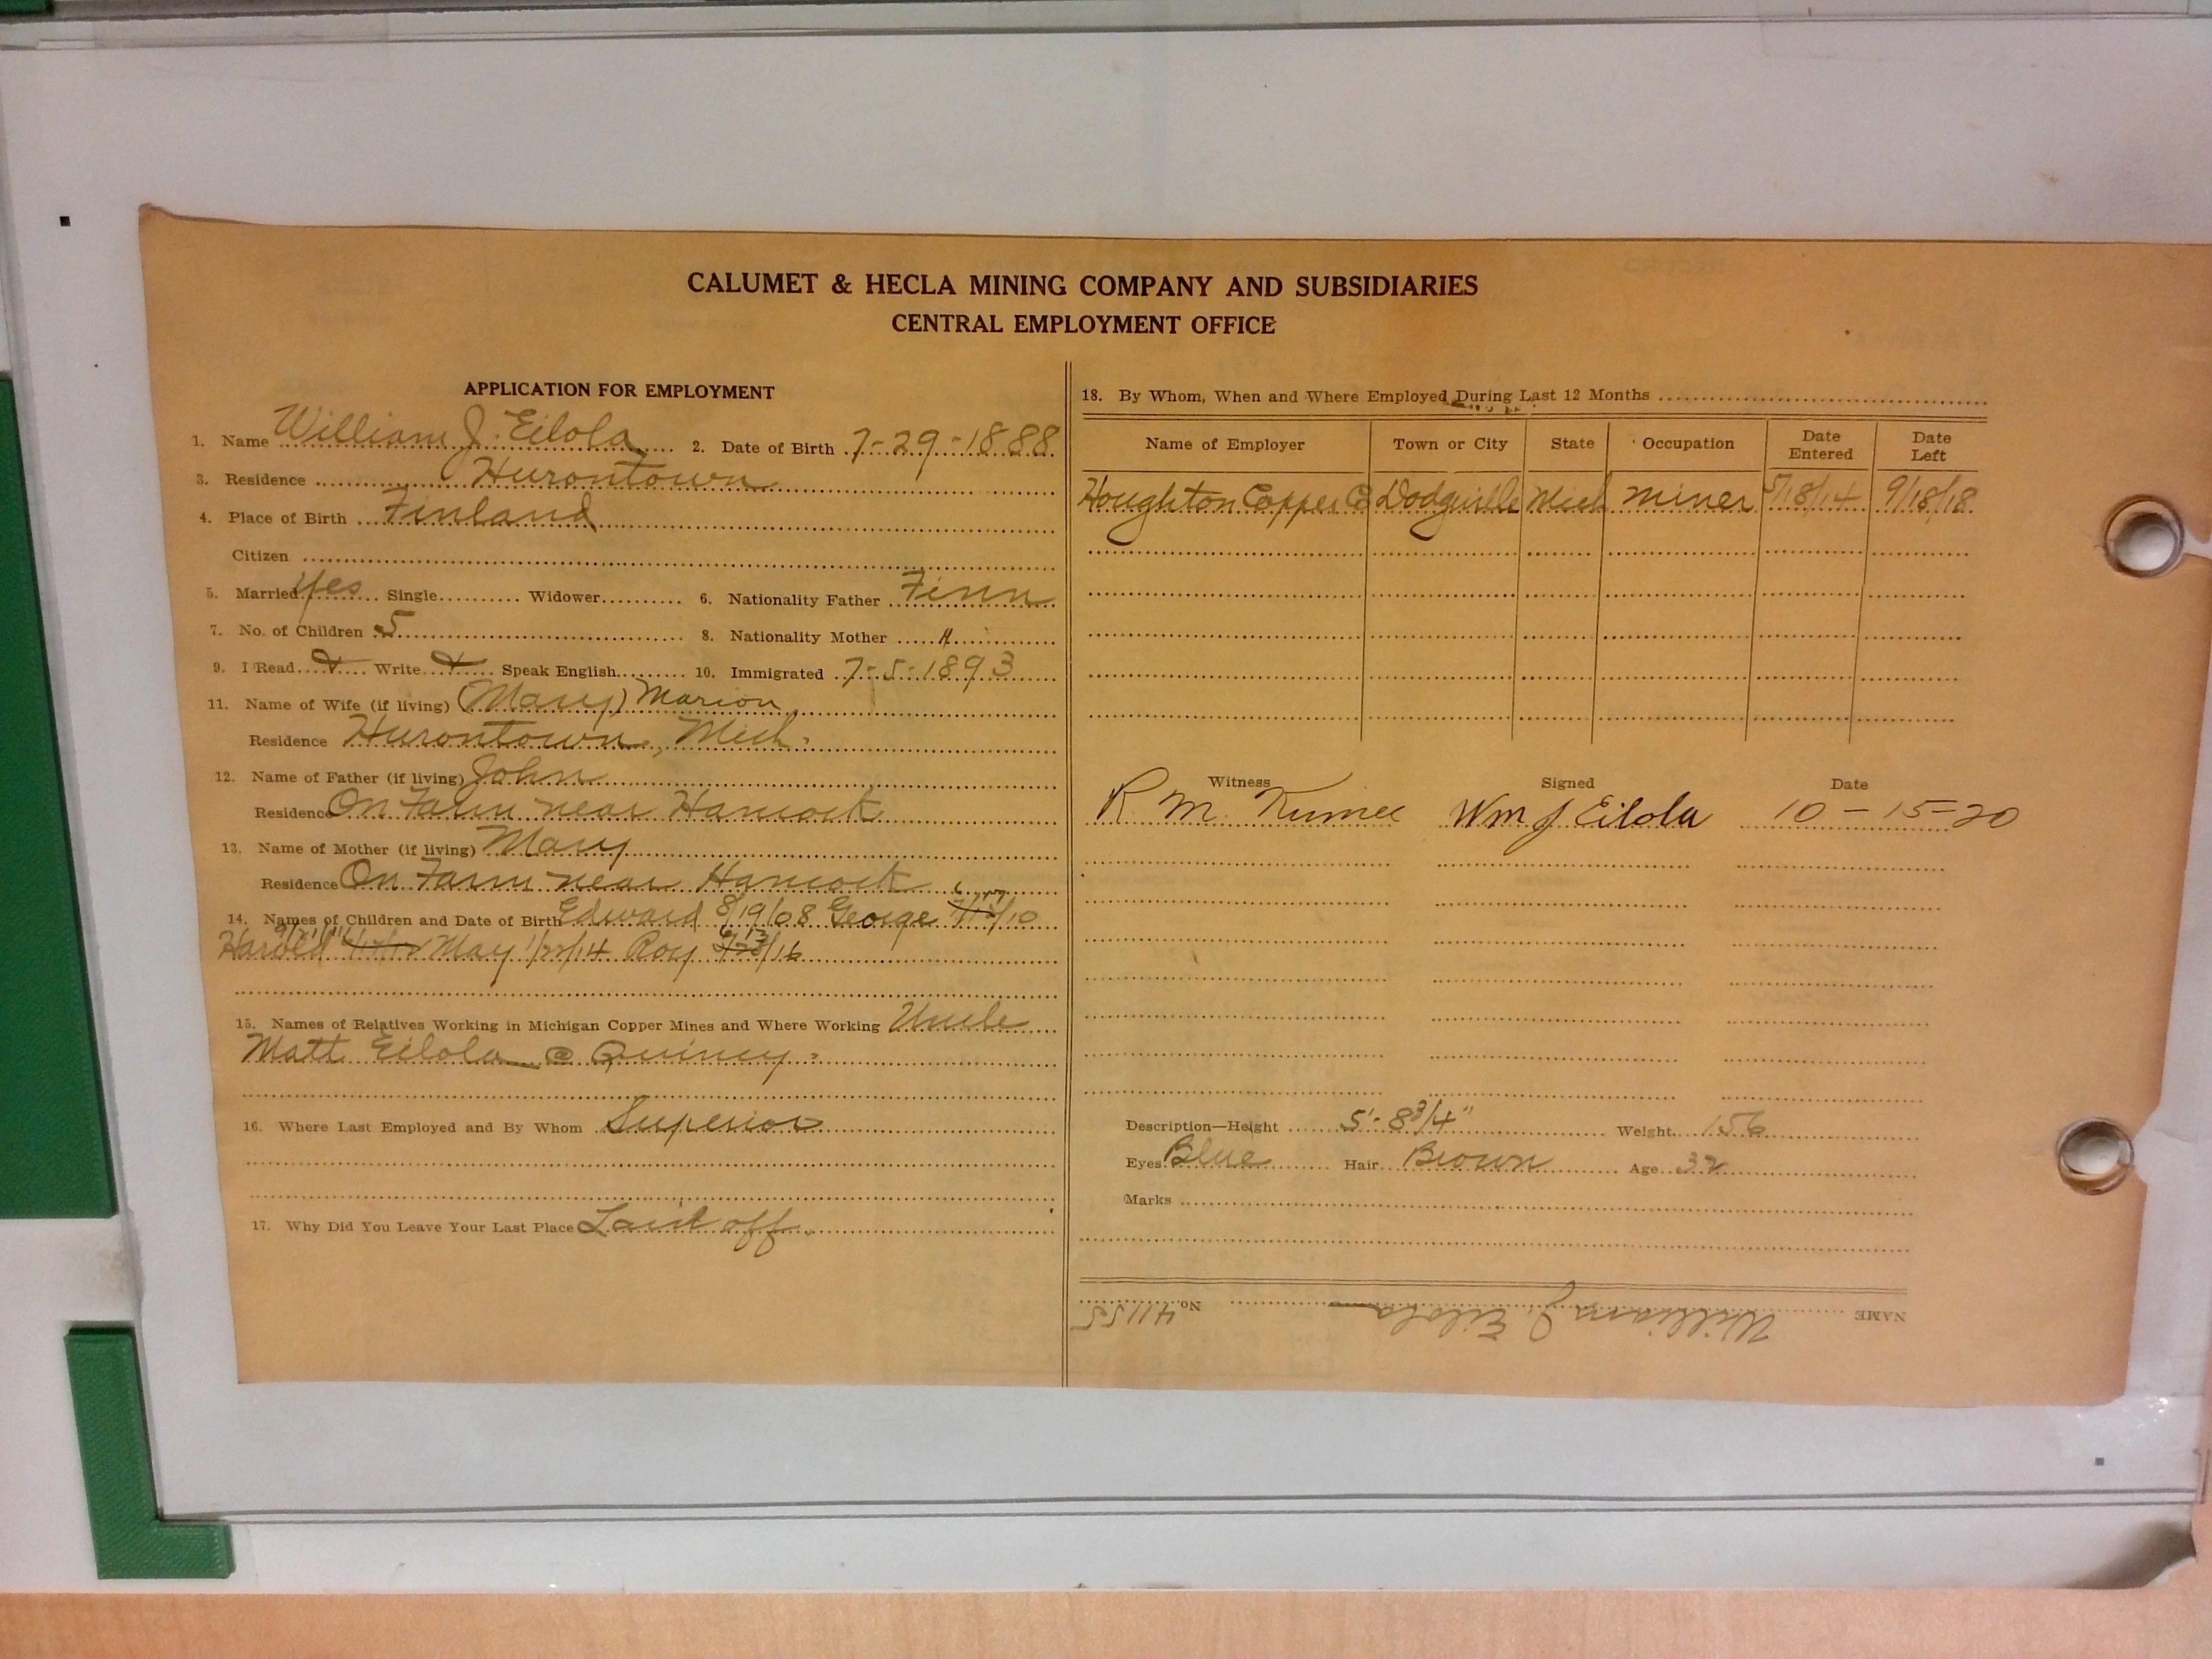 CALUMET & HECLA MINING COMPANY AND SUBSIDIARIES
CENTRAL EMPLOYMENT OFFICE
APPLICATION FOR EMPLOYMENT
1. Name William J. Eilola 2. Date of Birth 7-29-1888
3. Residence Hurontown
4. Place of Birth Finland
Citizen
5. Married Yes Single Widower 6. Nationality Father Finn
7. No. of Children 5 8. Nationality Mother "
9. I Read Write Speak English 10. Immigrated 7-5-1893
11. Name of Wife (if living) (Mary) Marion
Residence Hurontown, Mich.
12. Name of Father (if living) John
Residence On Farm near Hancock
13. Name of Mother (if living) Mary
Residence On Farm near Hancock
14. Names of Children and Date of Birth Edward 8/19/08 George /10
Harold May 1/22/14 Roy /16
15. Names of Relatives Working in Michigan Copper Mines and Where Working Uncle
Matt Eilola @ Quincy.
16. Where Last Employed and By Whom Superior
17. Why Did You Leave Your Last Place Laid off.
18. By Whom, When and Where Employed During Last 12 Months
Name of Employer Town or City State Occupation Date Entered Date Left
Houghton Copper Co Dodgeville Mich miner 5/18/14 9/18/18
Witness Signed Date
R. M. Wm J Eilola 10-15-20
Description—Height 5'-8 3/4" Weight 156
Eyes Blue Hair Brown Age 32
Marks
NAME William J. Eilola No. 41155